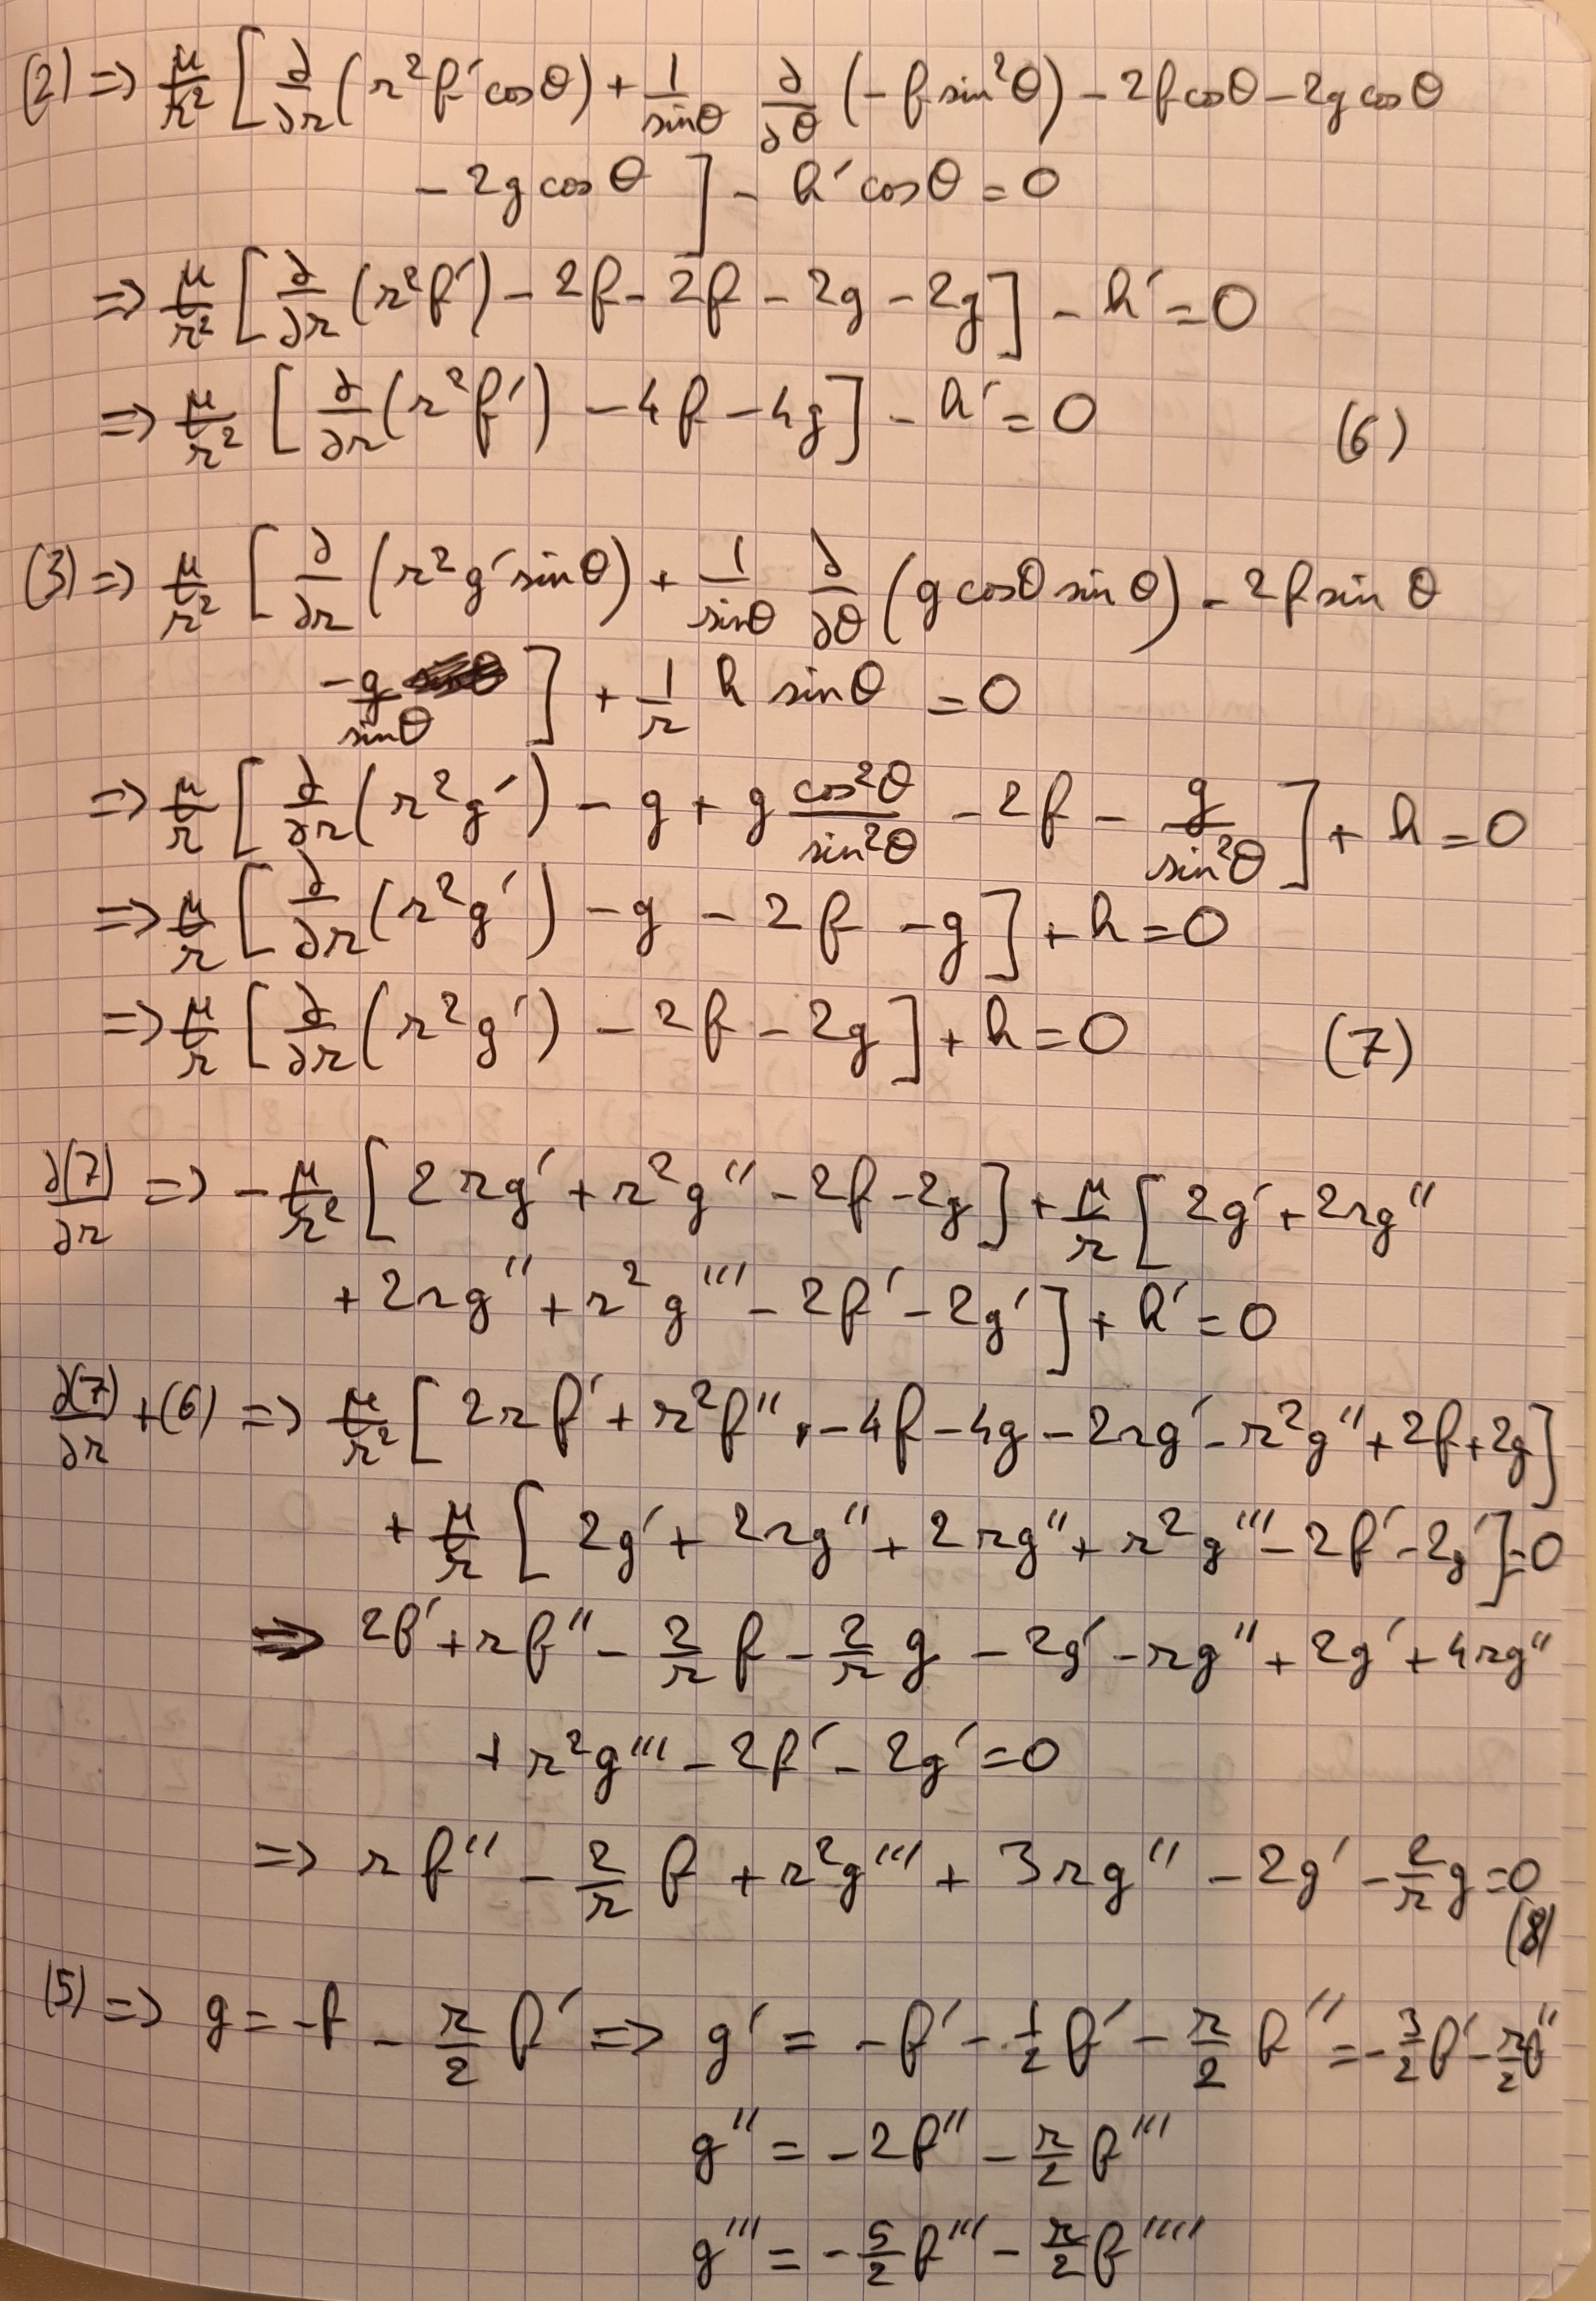 (2) => μ/r² [ ∂/∂r (r² f′ cosθ) + 1/sinθ ∂/∂θ (-f sin²θ) - 2f cosθ - 2g cosθ
- 2g cosθ ] - h′ cosθ = 0
=> μ/r² [ ∂/∂r (r² f′) - 2f - 2f - 2g - 2g ] - h′ = 0
=> μ/r² [ ∂/∂r (r² f′) - 4f - 4g ] - h′ = 0 (6)
(3) => μ/r² [ ∂/∂r (r² g′ sinθ) + 1/sinθ ∂/∂θ (g cosθ sinθ) - 2f sinθ
-g/sinθ ] + 1/r h sinθ = 0
=> μ/r [ ∂/∂r (r² g′) - g + g cos²θ/sin²θ - 2f - g/sin²θ ] + h = 0
=> μ/r [ ∂/∂r (r² g′) - g - 2f - g ] + h = 0
=> μ/r [ ∂/∂r (r² g′) - 2f - 2g ] + h = 0 (7)
∂(7)/∂r => - μ/r² [ 2rg′ + r² g″ - 2f - 2g ] + μ/r [ 2g′ + 2rg″
+ 2rg″ + r² g‴ - 2f′ - 2g′ ] + h′ = 0
∂(7)/∂r + (6) => μ/r² [ 2r f′ + r² f″ - 4f - 4g - 2rg′ - r² g″ + 2f + 2g ]
+ μ/r [ 2g′ + 2rg″ + 2rg″ + r² g‴ - 2f′ - 2g′ ] = 0
=> 2f′ + r f″ - 2/r f - 2/r g - 2g′ - rg″ + 2g′ + 4rg″
+ r² g‴ - 2f′ - 2g′ = 0
=> r f″ - 2/r f + r² g‴ + 3rg″ - 2g′ - 2/r g = 0
(8)
(5) => g = -f - r/2 f′ => g′ = -f′ - 1/2 f′ - r/2 f″ = - 3/2 f′ - r/2 f″
g″ = -2f″ - r/2 f‴
g‴ = - 5/2 f‴ - r/2 f⁗